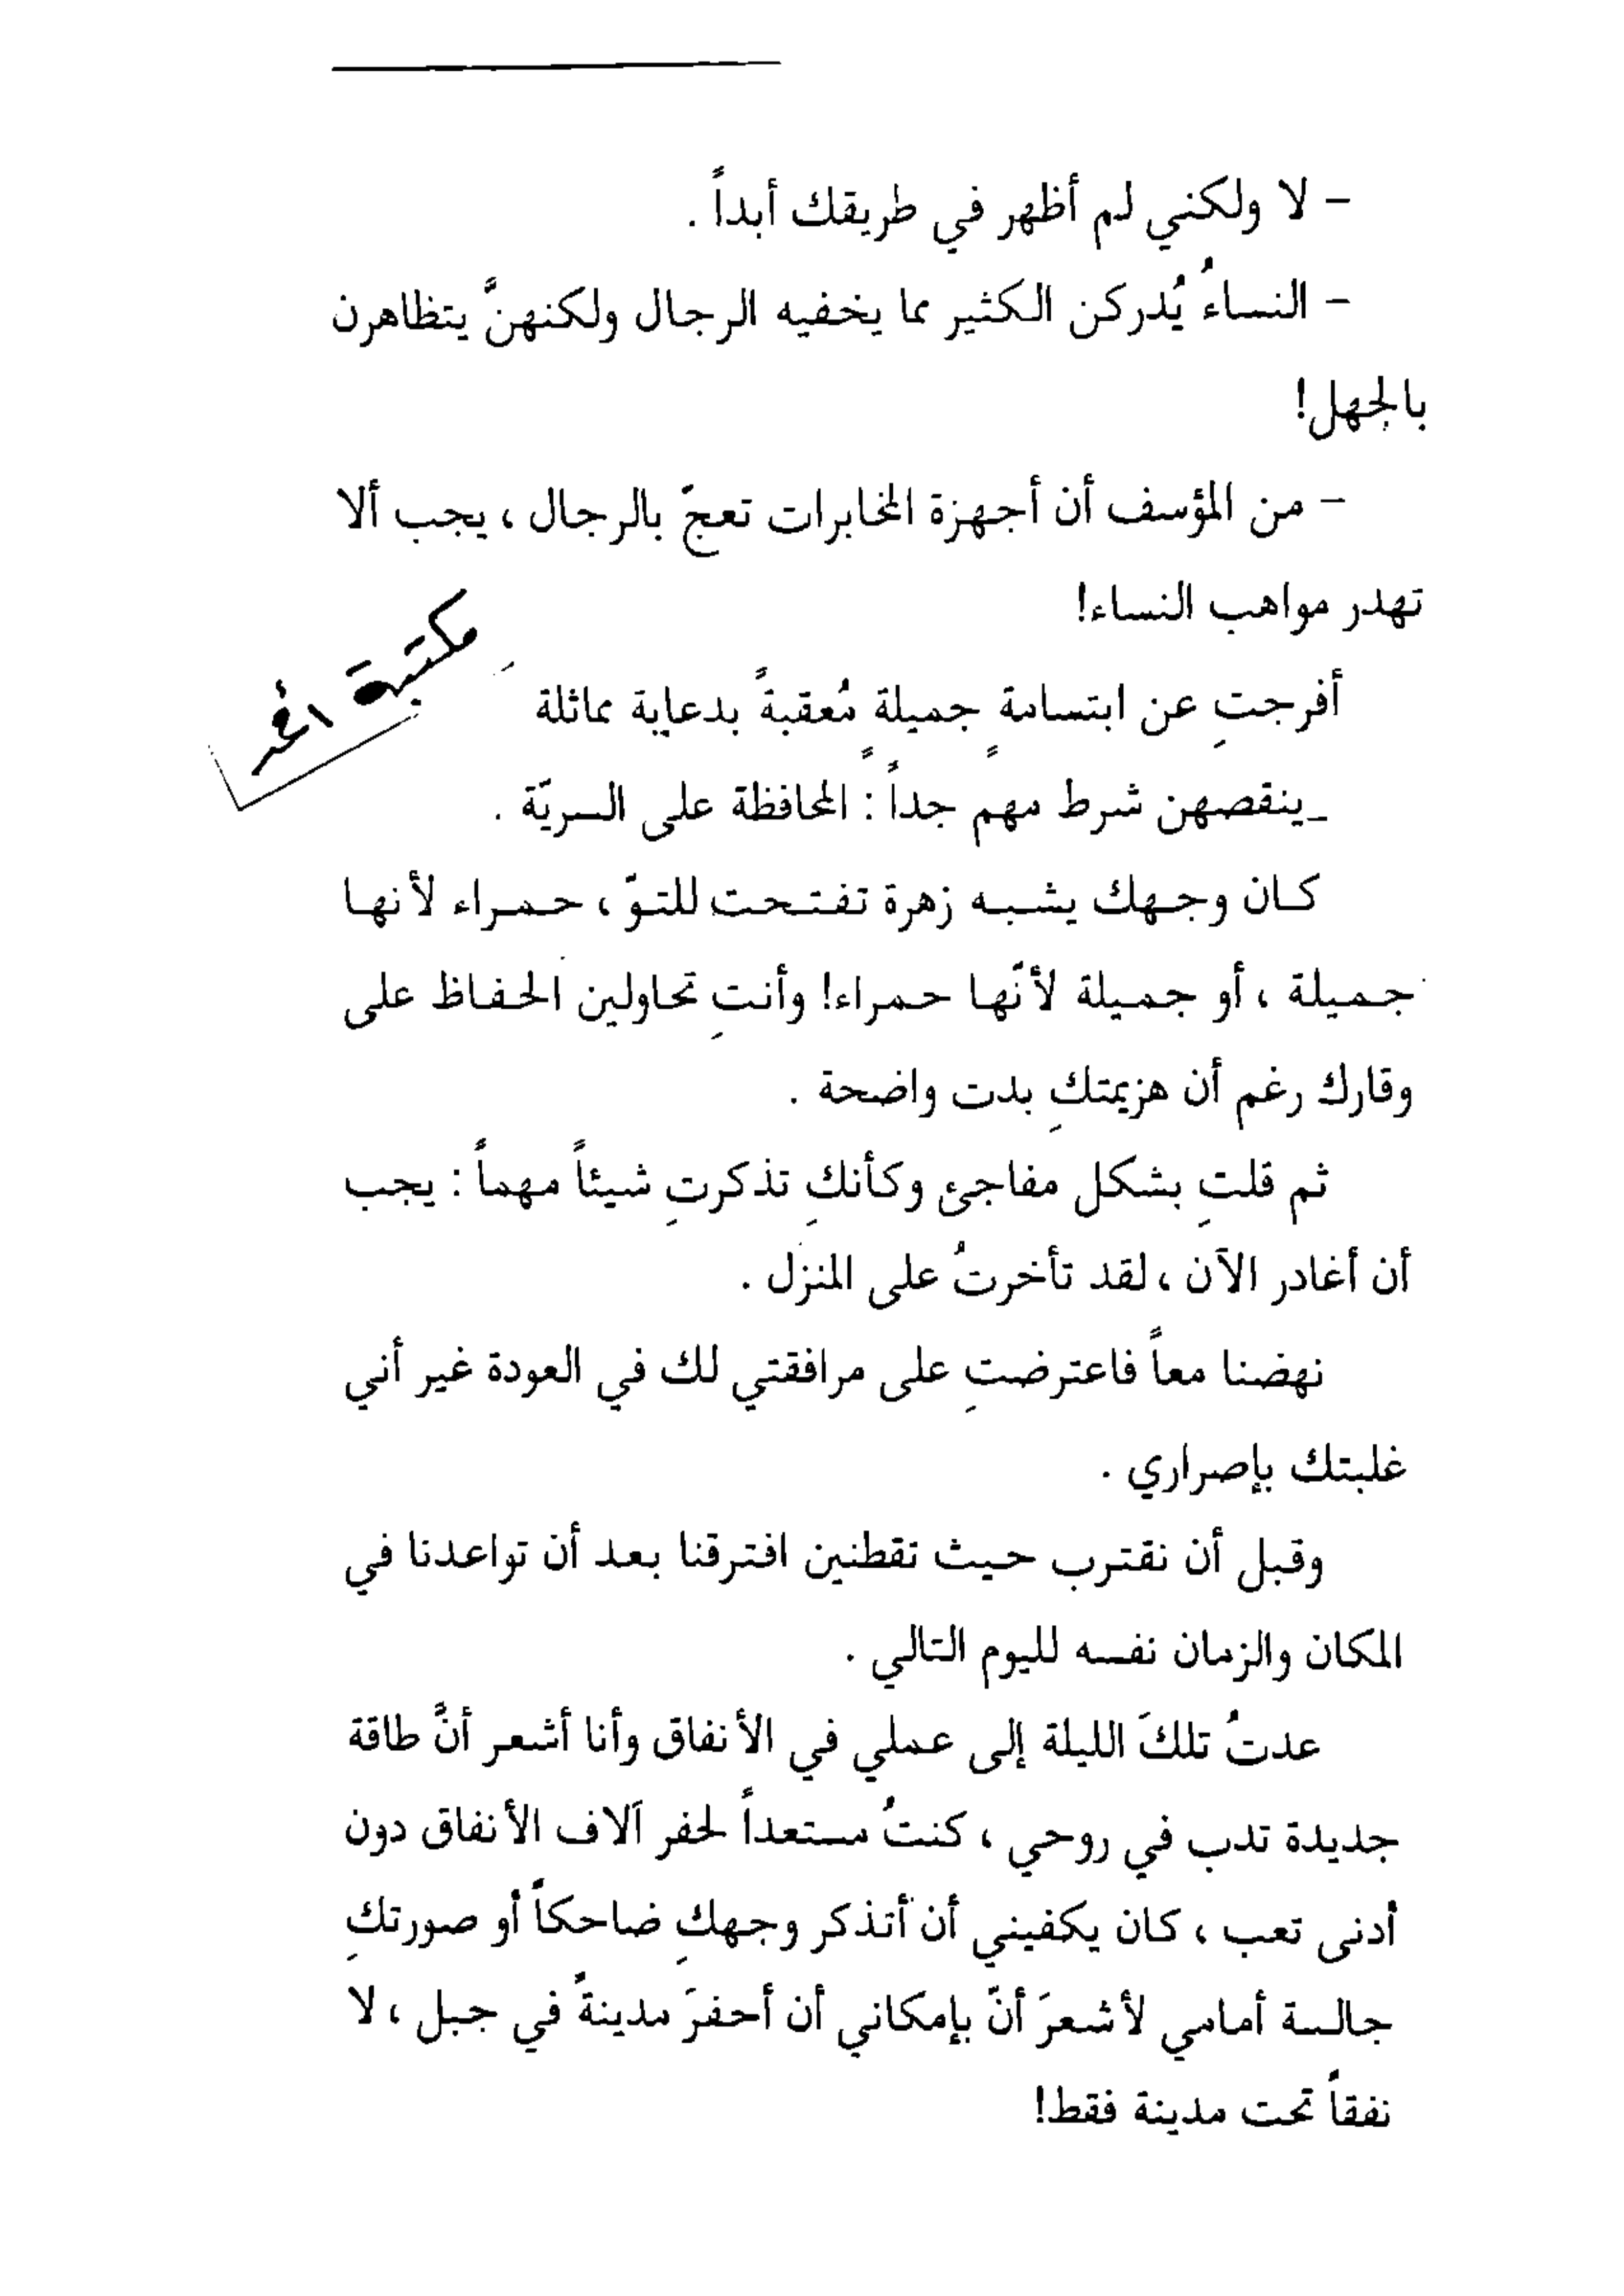 - لا ولكني لم أظهر في طريقك أبداً .
- النساءُ يُدركن الكثير مما يخفيه الرجال ولكنهنَّ يتظاهرن
بالجهل!
- من المؤسف أن أجهزة المخابرات تعجّ بالرجال ، يجب ألا
تهدر مواهب النساء!
مكتبة
أفرجتِ عن ابتسامة جميلة مُعقبةً بدعابة مماثلة
_ينقصهن شرط مهم جداً : المحافظة على السريّة .
كان وجهك يشبه زهرة تفتحت للتوّ ، حمراء لأنها
جميلة ، أو جميلة لأنّها حمراء! وأنتِ تحاولين الحفاظ على
وقارك رغم أن هزيمتكِ بدت واضحة .
ثم قلتِ بشكل مفاجئ وكأنكِ تذكرتِ شيئاً مهماً : يجب
أن أغادر الآن ، لقد تأخرتُ على المنزل .
نهضنا معاً فاعترضتِ على مرافقتي لك في العودة غير أني
غلبتك بإصراري .
وقبل أن نقترب حيث تقطنين افترقنا بعد أن تواعدنا في
المكان والزمان نفسه لليوم التالي .
عدتُ تلكَ الليلة إلى عملي في الأنفاق وأنا أشعر أنَّ طاقة
جديدة تدب في روحي ، كنتُ مستعداً لحفر آلاف الأنفاق دون
أدنى تعب ، كان يكفيني أن أتذكر وجهكِ ضاحكاً أو صورتكِ
جالسة أمامي لأشعرَ أنّ بإمكاني أن أحفرَ مدينةً في جبل ، لا
نفقاً تحت مدينة فقط!